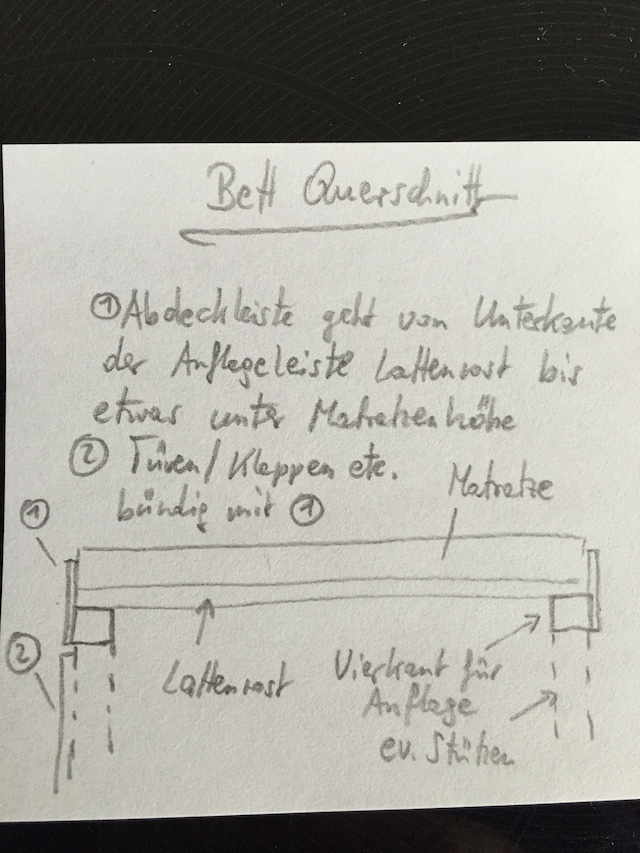 Bett Querschnitt
① Abdeckleiste geht von Unterkante
der Auflegeleiste Lattenrost bis
etwas unter Matratzenhöhe
② Türen/Klappen etc.
bündig mit ①
Matratze
①
②
Lattenrost
Vierkant für
Auflage
ev. Stützen